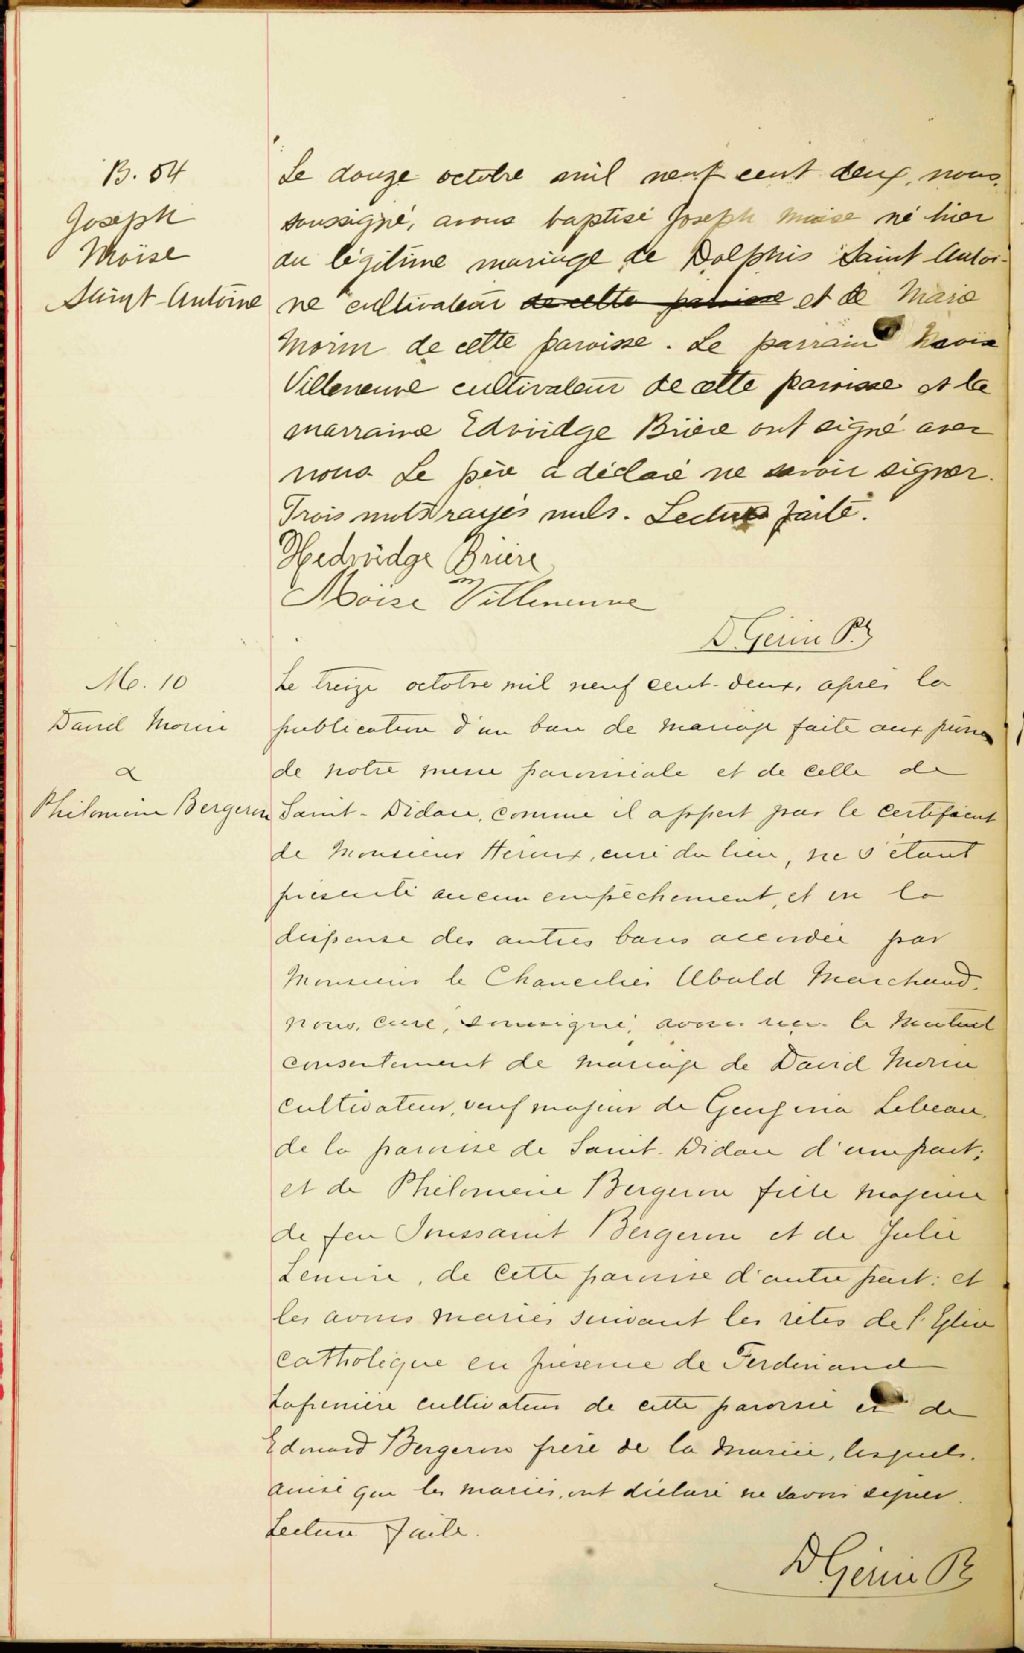 B. 54
Joseph
Moïse
Saint-Antoine
Le douze octobre mil neuf cent deux, nous,
soussigné, avons baptisé Joseph Moïse né hier
du légitime mariage de Dolphis Saint Antoi-
ne cultivateur de cette paroisse et de Marie
Morin de cette paroisse. Le parrain Moïse
Villeneuve cultivateur de cette paroisse et la
marraine Edwidge Brière ont signé avec
nous. Le père a déclaré ne savoir signer.
Trois mots rayés nuls. Lecture faite.
Hedwidge Brière
Moïse Villeneuve
D. Gérin Ptr
M. 10
David Morin
&
Philomène Bergeron
Le treize octobre mil neuf cent-deux, après la
publication d'un ban de mariage faite aux prônes
de notre messe paroissiale et de celle de
Saint-Didace, comme il appert par le certificat
de Monsieur Héroux, curé du lieu, ne s'étant
présenté aucun empêchement, et vu la
dispense des autres bans accordée par
Monsieur le Chancelier Ubald Marchand,
nous, curé, soussigné, avons reçu le mutuel
consentement de mariage de David Morin
cultivateur, veuf majeur de Georgina Lebeau,
de la paroisse de Saint-Didace d'une part;
et de Philomène Bergeron fille majeure
de feu Toussaint Bergeron et de Julie
Lemire, de cette paroisse d'autre part: et
les avons mariés suivant les rites de l'Eglise
catholique en présence de Ferdinand
Lafrenière cultivateur de cette paroisse et de
Edouard Bergeron frère de la mariée, lesquels,
ainsi que les mariés, ont déclaré ne savoir signer.
Lecture faite.
D. Gérin Ptr